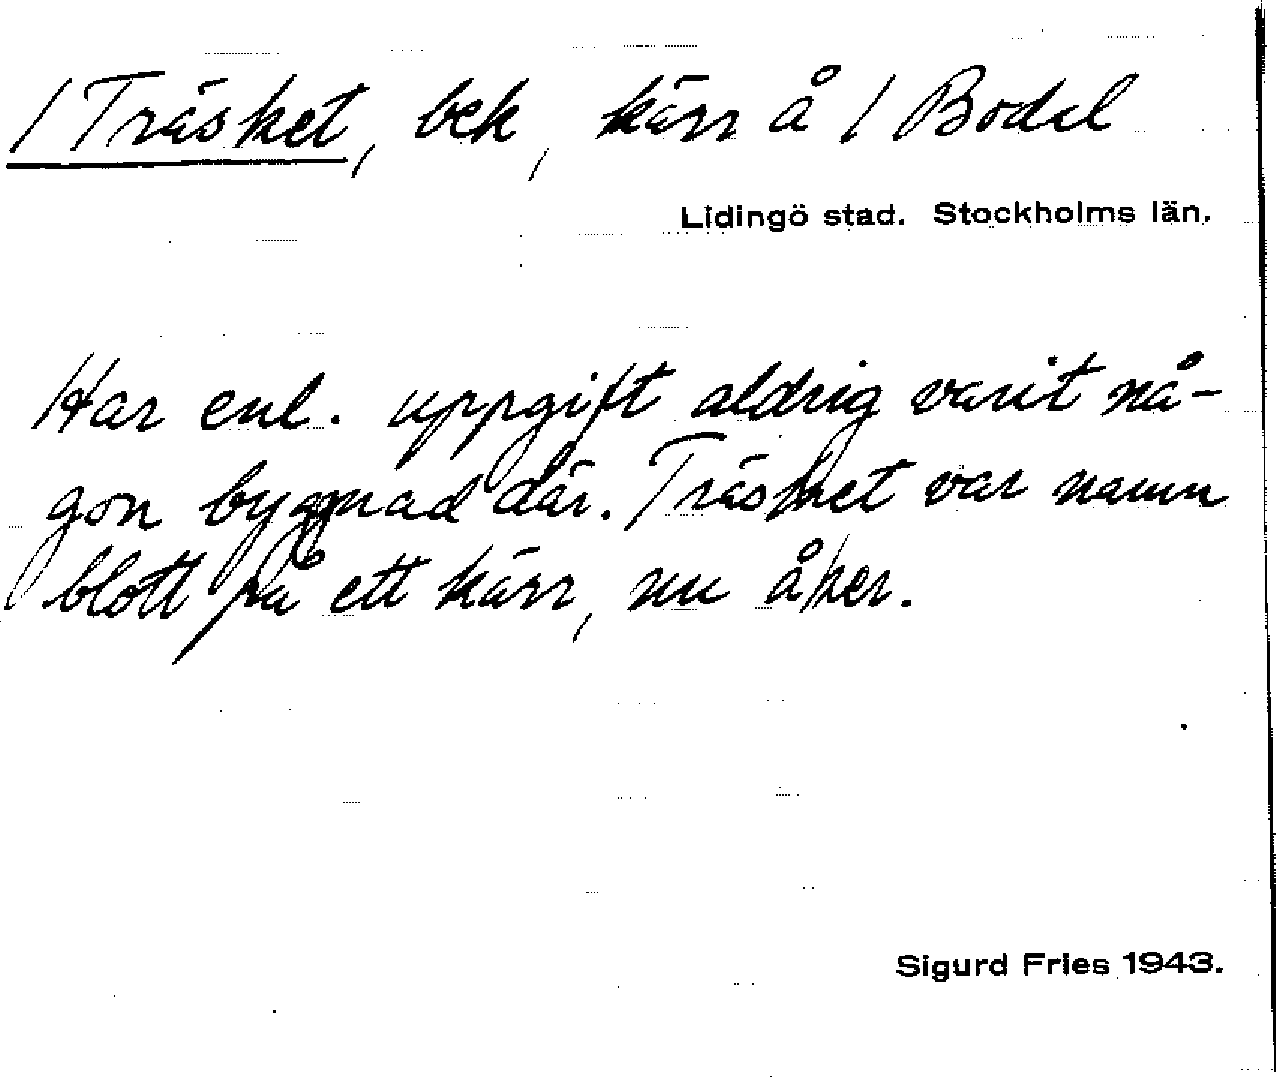 / Träsket, bek, kärr å / Bodal
Lidingö stad. Stockholms län.
Har enl. uppgift aldrig varit nå-
gon byggnad där. Träsket var namn
blott på ett kärr, nu åker.
Sigurd Fries 1943.